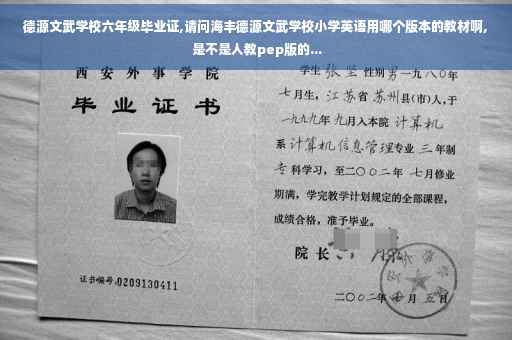 德源文武学校六年级毕业证,请问海丰德源文武学校小学英语用哪个版本的教材啊,
是不是人教pep版的...
西安外事学院
毕业证书
证书编号:0209130411
学生 张坚 性别 男 一九八〇年
七月生，江苏省 苏州县(市)人，于
一九九九年 九月入本院 计算机
系 计算机信息管理专业 三 年制
专 科学习，至二〇〇二年 七月修业
期满，学完教学计划规定的全部课程，
成绩合格，准予毕业。
院长
二〇〇二年 七 月 五 日